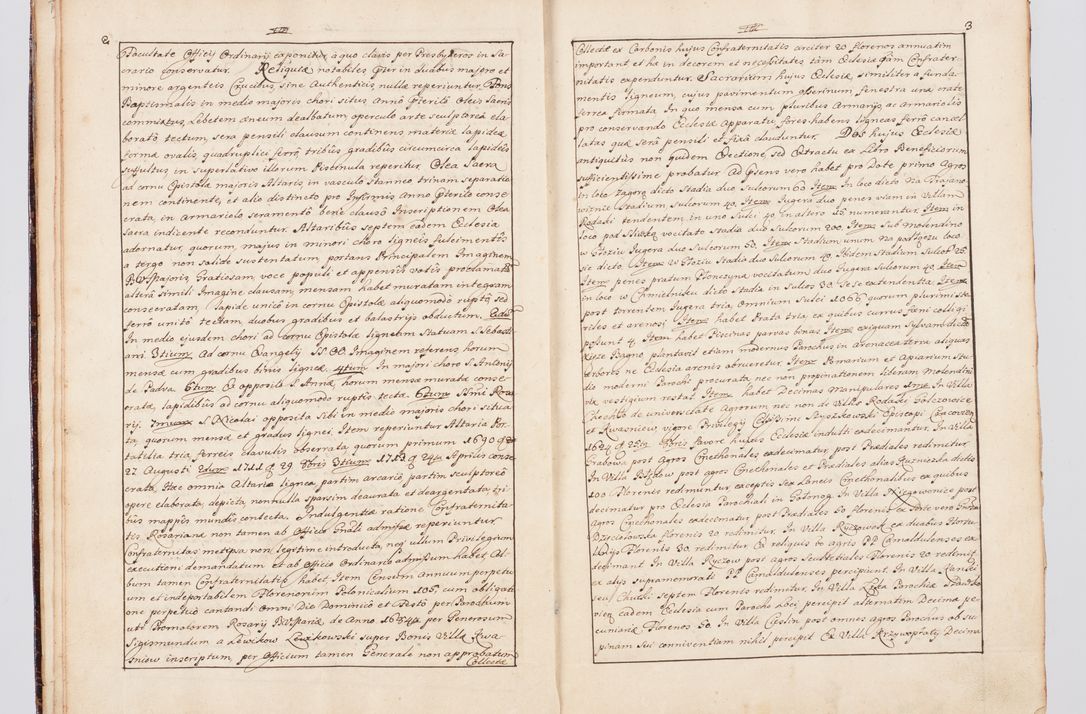 2
Facultate Officij Ordinarij exponitur, a quo claves per Presbyteros in Sa-
crario conservatur. Reliquiæ notabiles pter in duabus majore et
minore argenteis Crucibus, sine Authenticis, nulla reperiuntur. Fons
Baptismalis in medio majoris chori situs Anno pterito Oleis Sacris
commixtus, Lebetem æneum dealbatum, operculo arte sculptorea ela-
borato tectum, sera pensili clausum continens, materiæ lapideæ
forma ovalis, quadruplici ferro, tribus gradibus circumcirca lapideis
suffultus, in superlativo illorum Piscinula reperitur. Olea Sacra
ad cornu Epistolæ majoris Altaris, in vasculo Stanneo trinam separatio-
nem continente, et alio distincto pro Infirmis Anno pterito conse-
crata, in Armariolo seramento bene clauso Inscriptionem Olea
Sacra indicente reconduntur. Altaribus septem eadem Ecclesia
adornatur, quorum, majus in minori choro ligneis fulcimentis
a tergo non solide sustentatum, portans Principalem Imaginem
B.V. Mariæ, Gratiosam, voce populi et appensis votis proclamatam
altera simili Imagine clausam, mensam habet muratam integram
consecratam, lapide unico in cornu Epistolæ aliquomodo rupto, sed
ferro unito tectam, duobus gradibus et balastrijs obductum. 2dum
In medio ejusdem chori ad cornu Epistolæ ligneam Statuam S. Sebasti-
ani. 3tium. Ad cornu Evangelij SS. OO. Imaginem referens, horum
mensæ cum gradibus binis ligneæ. 4tum. In majori choro S. Antonij
de Padva. 5tum. Ex opposito S. Annæ, horum mensæ muratæ conse-
cratæ, lapidibus ad cornu aliquomodo ruptis tectæ. 6tum. SSmi Rosa-
rij. 7mum. S. Nicolai opposita sibi in medio majoris chori situa-
ta, quorum mensæ et gradus lignei. Item reperiuntur Altaria Por-
tatelia tria ferreis clavulis obserrata, quorum primum 1690
27 Augusti 2dum 1711 29 8bris 3tium 1713 24 Aprilis conse-
crata. Hæc omnia Altaria lignea, partim arcario, partim sculptoreo
opere elaborata, depicta, nonnulla sparsim deaurata et deargentata, tri-
bus mappis mundis contecta. Indulgentiæ ratione Confraternita-
tis Rosarianæ non tamen ab Officio Gnali admissæ reperiuntur
Confraternitas metipsa non legitime introducta, neq ullum Privilegium
executioni demandatum et ab Officio Ordinario admissum habet, Al-
bum tamen Confraternitatis habet. Item Censum Annuum perpetu-
um et indeportabilem Florenorum Polonicalium 105, cum obligati-
one perpetuo cantandi Omni Die Dominico et Festo per Parochum
uti Promotorem Rosarij B.V. Mariæ de Anno 1682 per Generosum
Sigismundum a Lewikow Lewikowski super Bonis Villæ Kwa-
sniew inscriptum, per Officium tamen Generale non approbatum
Collectæ
3
Collectæ ex Carbonis hujus Confraternitatis circiter 20 florenos annuatim
important et hæ in decorem et necessitates tam Ecclesiæ qam Confrater-
nitatis expenduntur. Sacrarium hujus Ecclesiæ, similiter a funda-
mentis ligneum, cujus pavimentum Asserinum fenestra una crate
ferrea firmata. In quo mensa cum pluribus Armarijs ac armariolis
pro conservando Ecclesiæ apparatu, fores habens ligneas ferro cancel-
latas quæ sera pensili et fixa clauduntur. Dos hujus Ecclesiæ
antiquitus non quidem Erectione, sed Extractu ex Libro Beneficiorum
sufficientissime probatur. Ad psens vero habet pro Dote primo Agros
in loco Zagore dicto Stadia duo Sulcorum 60. Item In loco dicto Na Trojano-
wicnie Stadium Sulcorum 40. Item Jugera duo penes viam in Villam
Rodaki tendentem in uno Sulci 40 In altero 50 numerantur. Item in
loco pod vocitato Stadia duo Sulcorum 200. Item Sub Molendino
w Groziu Jugera duo Sulcorum 60. Item Stadium unum Na podlęzu loco
sic dicto. Item W Groziu Stadia duo Sulcorum 70. Ibidem Stadium Sulcor 25.
Item penes pratum Plonczyna vocitatum duo Jugera Sulcorum 40. Item
in loco w Chmielnisku dicto Stadia in Sulcos 30 Se se extendentia. Item
post torrentem Jugera tria, Omnium Sulci 1066 quorum plurimi ste-
riles et arenosi. Item habet Prata tria, ex quibus currus fœni colligi
possunt 4. Item habet Piscinas parvas bonas. Item exiguam Sylvam dictam
Xięze Bagno plantavit etiam modernus Parochus in Arenacea terra aliquas
arbores ne Ecclesia arenis obrueretur. Item Pomarium et Apiarium Stu-
dio moderni Parochi procurata, nec non propinationem liberam Molendini
vix vestigium restat. Item habet Decimas Manipulares 1mo In Villa
Chechlo de universitate Agrorum nec non de Villis Rodaki Golczowice
et Kwasniew, vigore Privilegij Cssni Szyszkowski Episcopi Cracovien
1624 25 8bris Favore hujus Ecclesiæ indulti exdecimantur. In Villa
Grabowa post agros Cmethonales exdecimatur, post Prædiales redimitur.
In Villa post agros Cmethonales et Prædiales alias Kuznicza dictos
100 Florenis redimuntur exceptis Sex Laneis Cmethonalibus ex quibus
decimatur pro Ecclesia Parochiali in Golonog. In Villa Niegowonice post
Agros Cmethonales exdecimatur, post Prædiales 60 florenis Ex Parte vero Gnosi
Dzierzławska florenis 20 redimitur. In Villa Ryczowek ex duabus Hortu-
labus Florenis 30 redimitur, Ex reliquis vo agris PP Camaldulenses ex-
decimant. In Villa Ryczow post agros Scultetiales Florenis 20 redimit
ex alijs supramemorati PP Camaldulenses percipiunt. In Villa Kanski
seu Chucki Septem Florenis redimitur. In Villa Zięba Parochiæ Slawko-
vien eadem Ecclesia cum Parocho Loci percipit alternatim Decimæ pe-
cuniariæ Florenos 50. In Villa Ceslin post omnes agros Parochus ob su-
pinam sui conniventiam nihil percipit. Ex Villa Krzywopłoty Decima